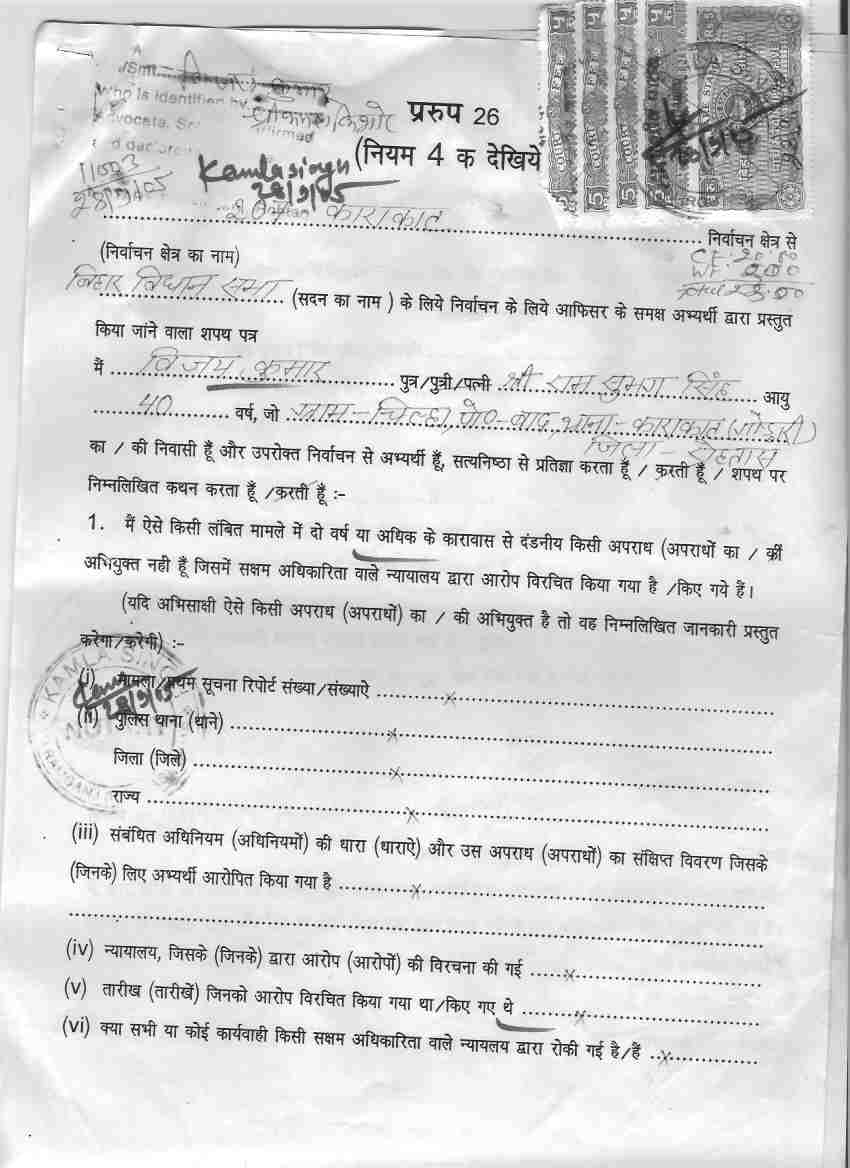 Smt. विजय कुमार
who is identification by श्रीकमल किशोर
Advocate. affirmed
प्ररुप 26
(नियम 4 क देखिये
11003
28/9/05
Kamla Singh
28/9/05
काराकात
निर्वाचन क्षेत्र से
(निर्वाचन क्षेत्र का नाम)
बिहार विधान सभा (सदन का नाम ) के लिये निर्वाचन के लिये आफिसर के समक्ष अभ्यर्थी द्वारा प्रस्तुत
किया जांने वाला शपथ पत्र
मैं विजय कुमार पुत्र/पुत्री/पत्नी श्री राम सुभग सिंह आयु
40 वर्ष, जो ग्राम-चिल्हा, पो०-बाद, थाना-काराकात (गोड़ारी)
जिला-रोहतास
का / की निवासी हूँ और उपरोक्त निर्वाचन से अभ्यर्थी हूँ, सत्यनिष्ठा से प्रतिज्ञा करता हूँ / करती हूँ / शपथ पर
निम्नलिखित कथन करता हूँ /करती हूँ :-
1. मैं ऐसे किसी लंबित मामले में दो वर्ष या अधिक के कारावास से दंडनीय किसी अपराध (अपराधों का / की
अभियुक्त नही हूँ जिसमें सक्षम अधिकारिता वाले न्यायालय द्वारा आरोप विरचित किया गया है /किए गये हैं।
(यदि अभिसाक्षी ऐसे किसी अपराध (अपराधों) का / की अभियुक्त है तो वह निम्नलिखित जानकारी प्रस्तुत
करेगा/करेगी) :-
KAMLA SINGH
28/9/05
(i) मामला/प्रथम सूचना रिपोर्ट संख्या/संख्याऐ ..........x..........
(ii) पुलिस थाना (थाने) ..........x..........
जिला (जिले) ..........x..........
राज्य ..........x..........
(iii) संबंधित अधिनियम (अधिनियमों) की धारा (धाराऐ) और उस अपराध (अपराधों) का संक्षिप्त विवरण जिसके
(जिनके) लिए अभ्यर्थी आरोपित किया गया है ..........x..........
(iv) न्यायालय, जिसके (जिनके) द्वारा आरोप (आरोपों) की विरचना की गई ..........x..........
(v) तारीख (तारीखें) जिनको आरोप विरचित किया गया था/किए गए थे ..........x..........
(vi) क्या सभी या कोई कार्यवाही किसी सक्षम अधिकारिता वाले न्यायलय द्वारा रोकी गई है/हैं ..........x..........